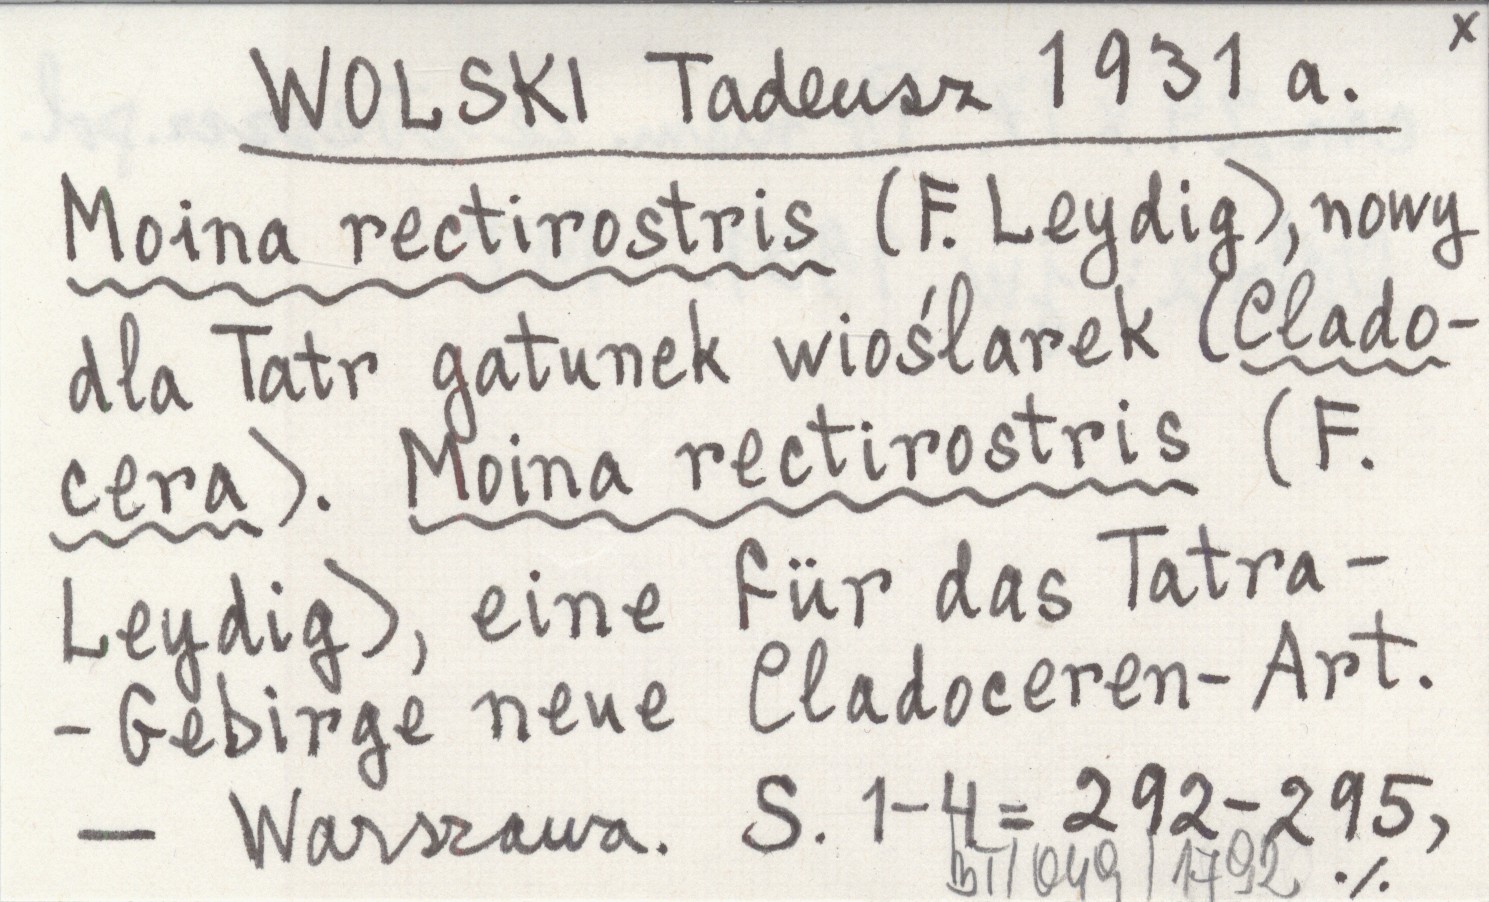 x
WOLSKI Tadeusz 1931 a.
Moina rectirostris (F. Leydig), nowy
dla Tatr gatunek wioślarek (Clado-
cera). Moina rectirostris (F.
Leydig), eine für das Tatra-
-Gebirge neue Cladoceren-Art.
— Warszawa. S. 1-4 = 292-295,
1792 ./.